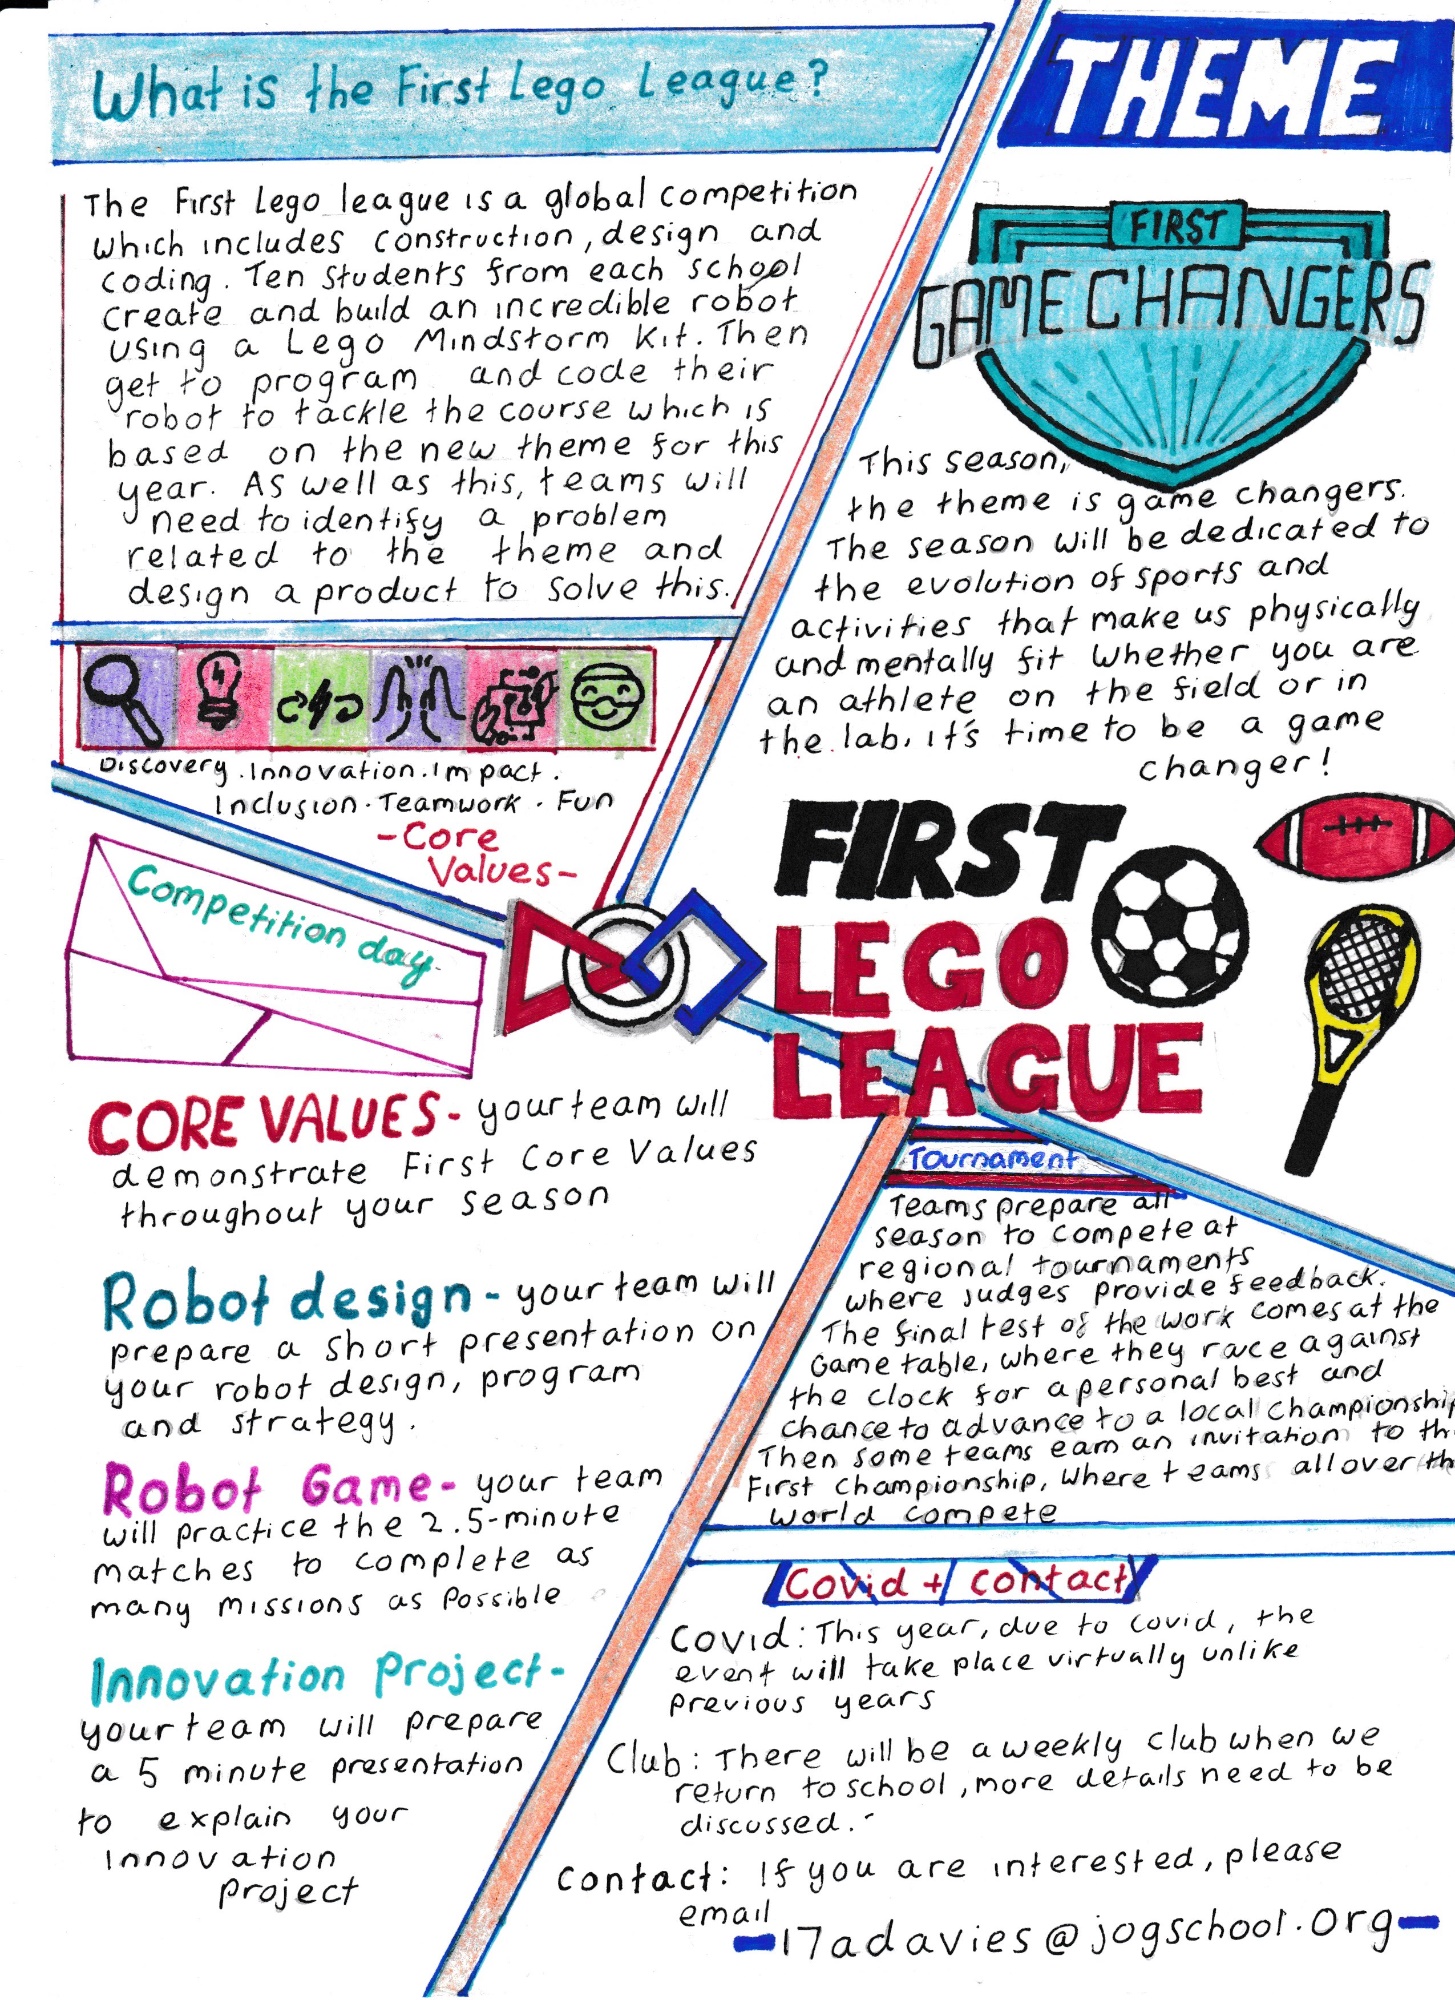 What is the First Lego League?
The First Lego league is a global competition
which includes construction, design and
coding. Ten students from each school
create and build an incredible robot
using a Lego Mindstorm Kit. Then
get to program and code their
robot to tackle the course which is
based on the new theme for this
year. As well as this, teams will
need to identify a problem
related to the theme and
design a product to solve this.
Discovery. Innovation. Impact.
Inclusion. Teamwork. Fun
-Core
Values-
THEME
FIRST
GAME CHANGERS
This season,
the theme is game changers.
The season will be dedicated to
the evolution of sports and
activities that make us physically
and mentally fit whether you are
an athlete on the field or in
the lab, it's time to be a game
changer!
FIRST
LEGO
LEAGUE
Competition day
CORE VALUES- your team will
demonstrate First Core Values
throughout your season
Robot design- your team will
prepare a short presentation on
your robot design, program
and strategy.
Robot Game- your team
will practice the 2.5-minute
matches to complete as
many missions as possible
Innovation Project-
your team will prepare
a 5 minute presentation
to explain your
Innovation
Project
Tournament
Teams prepare all
season to compete at
regional tournaments
where judges provide feedback.
The final test of the work comes at the
Game table, where they race against
the clock for a personal best and
chance to advance to a local championship
Then some teams earn an invitation to th
First championship, where teams all over th
world compete
Covid + contact
Covid: This year, due to covid, the
event will take place virtually unlike
previous years
Club: There will be a weekly club when we
return to school, more details need to be
discussed.
Contact: If you are interested, please
email
-17adavies@jogschool.org-